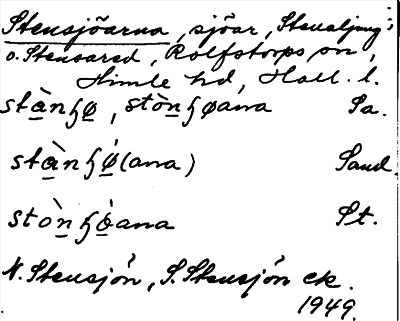 Stensjöarna, sjöar, Stenaljung
o. Stensared, Rolfstorps sn,
Himle hd, Hall. l.
stàn̲ɧø̲, stòn̲ɧøana Sa.
stàn̲ɧǿ̲(ana) Sand.
stòn̲ɧò̲ana St.
N. Stensjön, S. Stensjön ek.
1949.